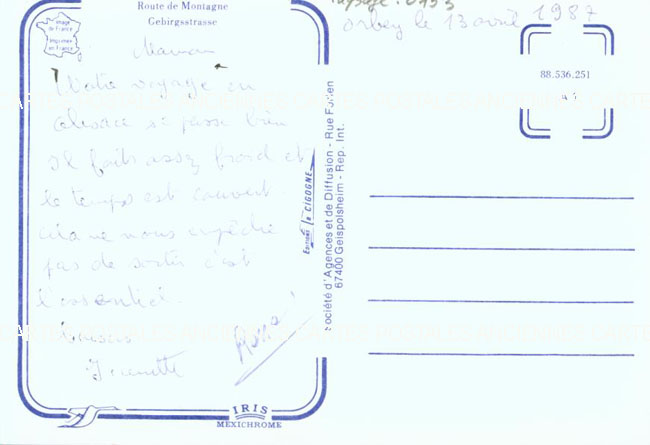 Route de Montagne
Gebirgsstrasse
image
de France
Imprimée
en France
Maman
Notre voyage en
Alsace se passe bien
Il fait assez froid et
le temps est couvert
cela ne nous empêche
pas de sortir c'est
l'essentiel.
Baisers
Roger
Editions la CIGOGNE
Société d'Agences et de Diffusion - Rue
67400 Geispolsheim - Rep. Int.
IRIS
MEXICHROME
Paysage : 0953
orbey le 13 avril 1987
88.536.251
CARTES POSTALES ANCIENNES CARTES POSTALES ANCIENNES CARTE
CARTES POSTALES ANCIENNES CARTES POSTALES ANCIENNES CARTE